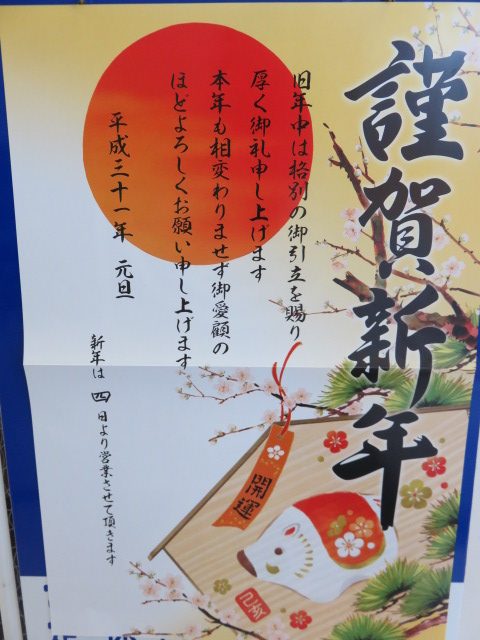 謹賀新年
旧年中は格別の御引立を賜り
厚く御礼申し上げます
本年も相変わりませず御愛顧の
ほどよろしくお願い申し上げます
平成三十一年 元旦
新年は 四 日より営業させて頂きます
開運
己亥